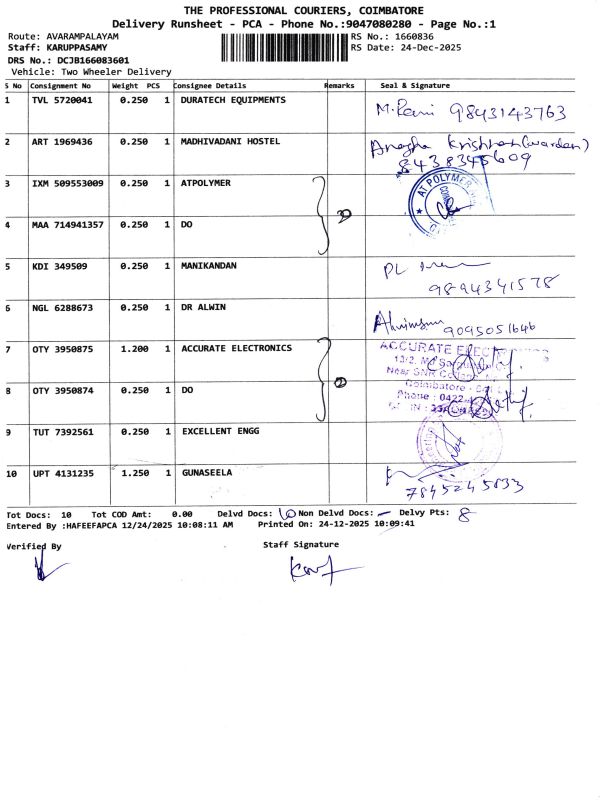 THE PROFESSIONAL COURIERS, COIMBATORE
Delivery Runsheet - PCA - Phone No.:9047080280 - Page No.:1
Route: AVARAMPALAYAM RS No.: 1660836
Staff: KARUPPASAMY RS Date: 24-Dec-2025
DRS No.: DCJB166083601
Vehicle: Two Wheeler Delivery
S No Consignment No Weight PCS Consignee Details Remarks Seal & Signature
1 TVL 5720041 0.250 1 DURATECH EQUIPMENTS 9843143763
2 ART 1969436 0.250 1 MADHIVADANI HOSTEL Anagha Krishnan (warden)
8438345609
3 IXM 509553009 0.250 1 ATPOLYMER AT POLYMER
4 MAA 714941357 0.250 1 DO
5 KDI 349509 0.250 1 MANIKANDAN
9894341578
6 NGL 6288673 0.250 1 DR ALWIN 9095051646
7 OTY 3950875 1.200 1 ACCURATE ELECTRONICS ACCURATE
Near SNR
8 OTY 3950874 0.250 1 DO Coimbatore
Phone : 0422
9 TUT 7392561 0.250 1 EXCELLENT ENGG
10 UPT 4131235 1.250 1 GUNASEELA
7845245833
Tot Docs: 10 Tot COD Amt: 0.00 Delvd Docs: 10 Non Delvd Docs: - Delvy Pts: 8
Entered By :HAFEEFAPCA 12/24/2025 10:08:11 AM Printed On: 24-12-2025 10:09:41
Verified By Staff Signature